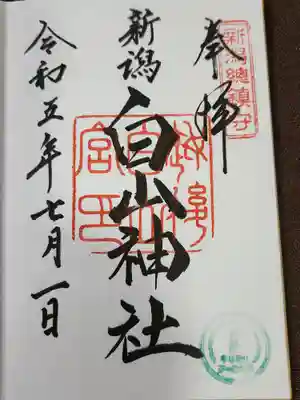 奉拝
新潟總鎮守
新潟
白山神社
令和五年七月一日